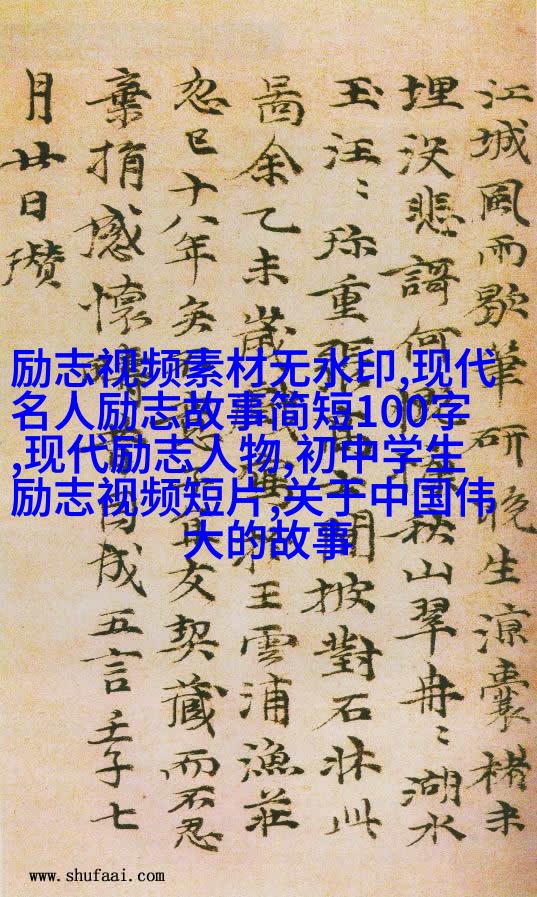 江城風雨歇筆研晚生涼囊楮未
埋沒悲謌何秋山翠冉〻湖水
玉汪〻珎重張高士閒披對石牀此
啚余乙未歲戲王雲浦漁莊
忽已十八年矣不友契藏而不忍
棄捐感懷因成五言壬子七
月廿日瓚
励志视频素材无水印,现代
名人励志故事简短100字
,现代励志人物,初中学生
励志视频短片,关于中国伟
大的故事
www.shufaai.com